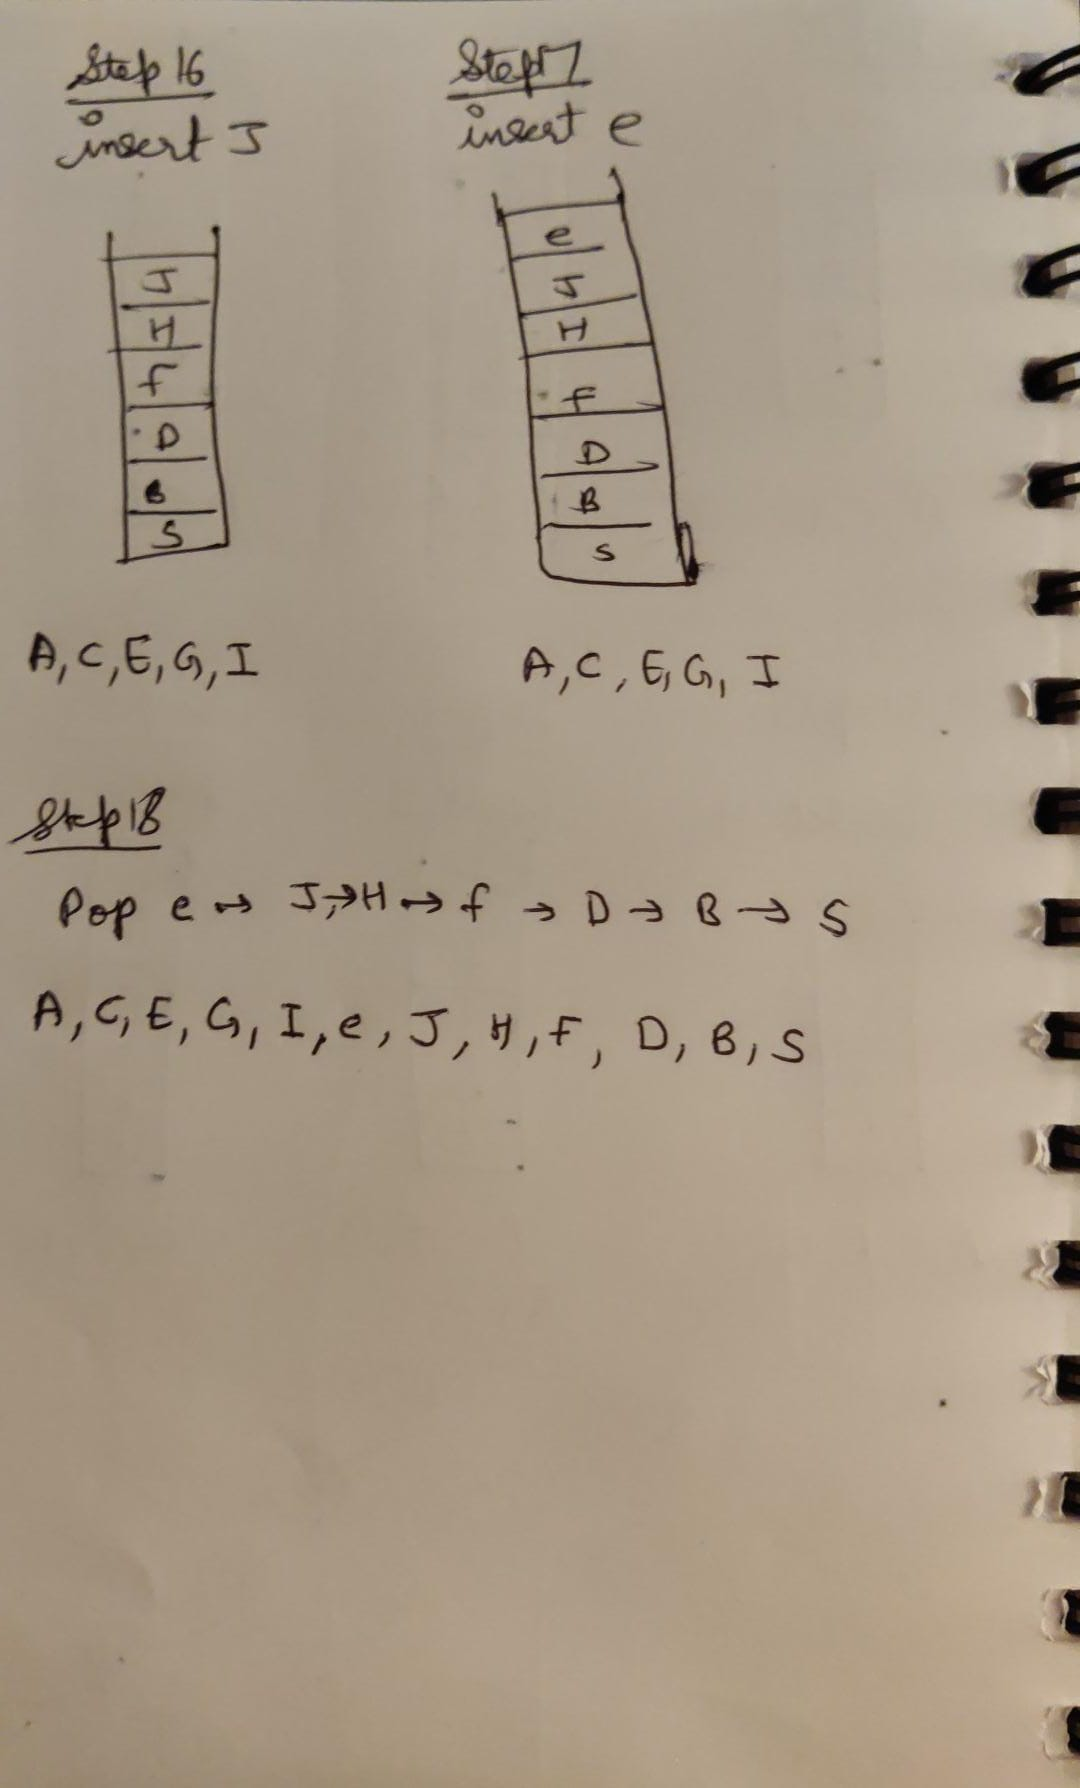 Step 16
insert J
J
H
f
D
B
S
A, C, E, G, I
Step 17
insert e
e
J
H
f
D
B
S
A, C, E, G, I
Step 18
Pop e → J, → H → f → D → B → S
A, C, E, G, I, e, J, H, F, D, B, S